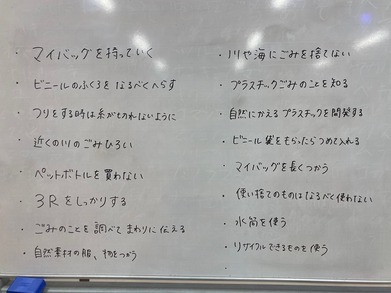 ・マイバッグを持っていく
・ビニールのふくろをなるべくへらす
・つりをする時は糸がきれないように
・近くの川のごみひろい
・ペットボトルを買わない
・3Rをしっかりする
・ごみのことを調べてまわりに伝える
・自然素材の服、物をつかう
・川や海にごみを捨てない
・プラスチックごみのことを知る
・自然にかえるプラスチックを開発する
・ビニール袋をもらったらつめて入れる
・マイバッグを長くつかう
・使い捨てのものはなるべく使わない
・水筒を使う
・リサイクルできるものを使う
・